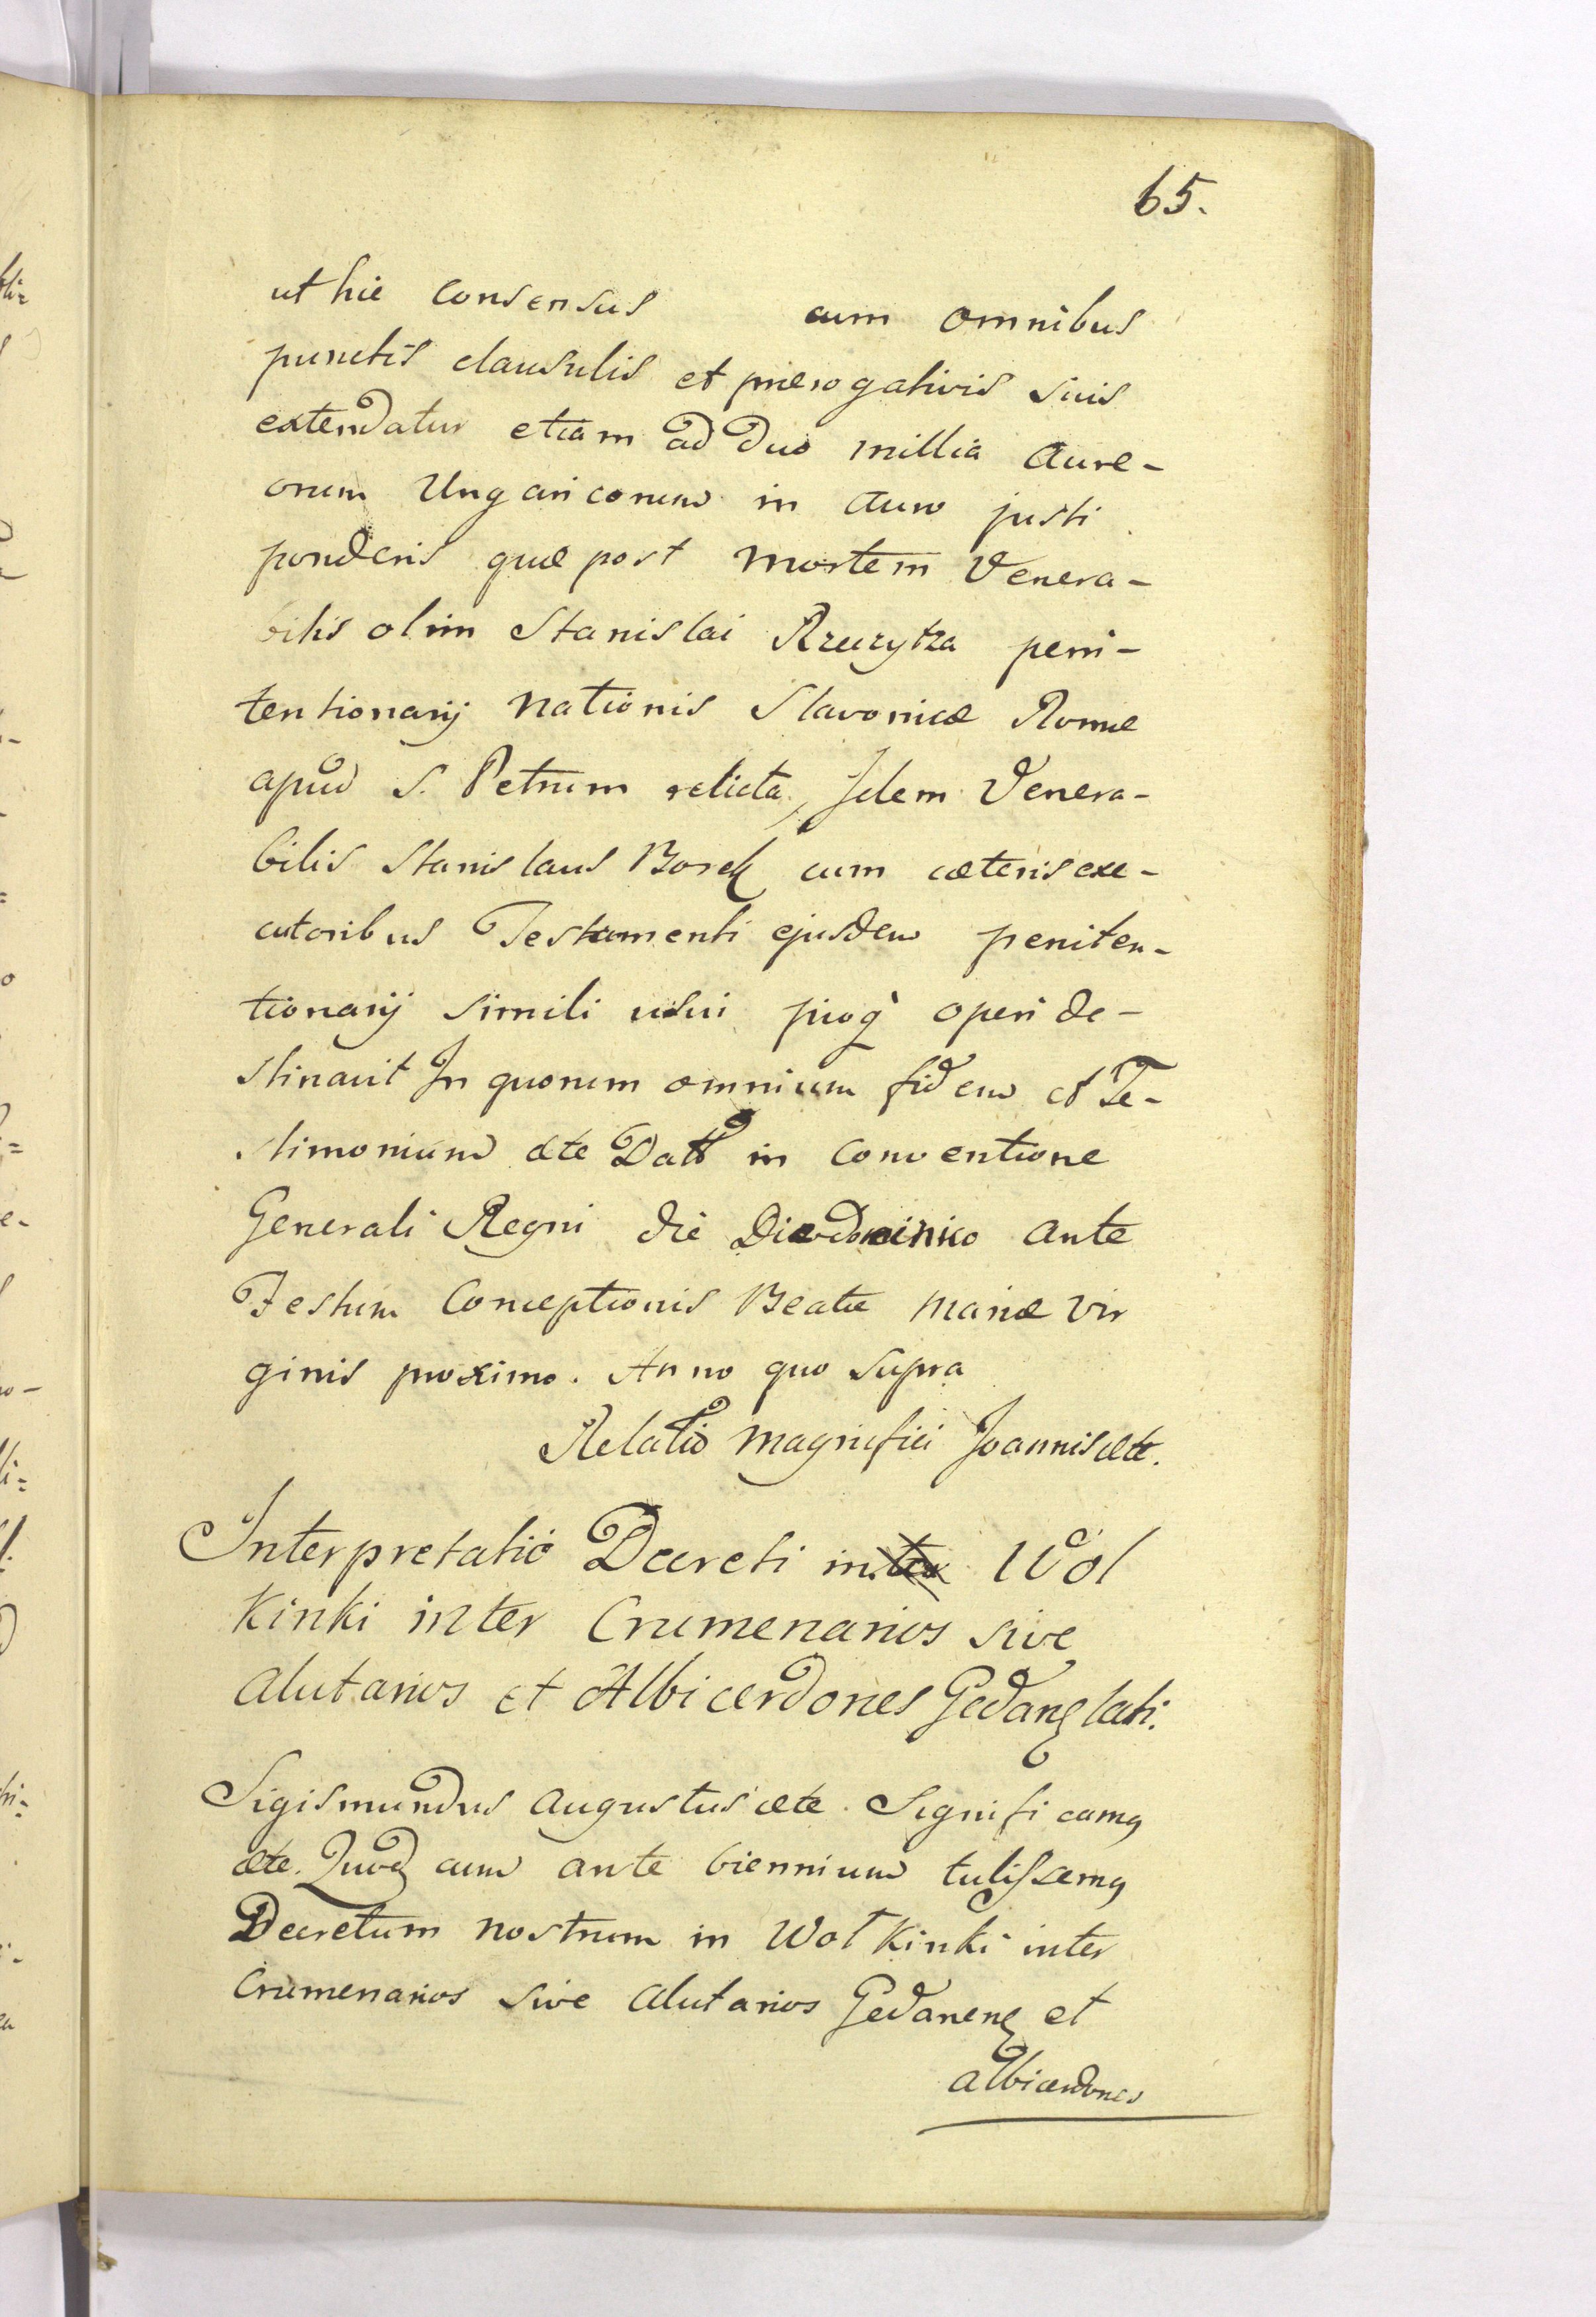 65.
ut hic consensus cum omnibus
punctis clausulis et prærogativis suis
extendatur etiam ad duo millia aure-
orum Ungaricorum in auro justi
ponderis quæ post mortem Venera-
bilis olim Stanislai Rzeczytza peni-
tentionarij nationis Slavonicæ Romæ
apud S. Petrum relicta, Idem Venera-
bilis Stanislaus Borek cum cæteris exe-
cutoribus Testamenti ejusdem peniten-
tionarij simili usui pioq operi de-
stinavit In quorum omnium fidem et Te-
stimonium etc Datt in Conventione
Generali Regni die Dominico ante
Festum Conceptionis Beatæ Mariæ Vir
ginis proximo. Anno quo supra
Relatio Magnifici Joannis etc.
Interpretatio Decreti inter Wol
kinki inter Crumenarios sive
Alutarios et Albicerdones Gedanę lati.
Sigismundus Augustus etc. Significamꝰ
etc. Quod cum ante biennium tulissemꝰ
Decretum nostrum in Wolkinki inter
Crumenarios sive Alutarios Gedanenę et
albicerdones